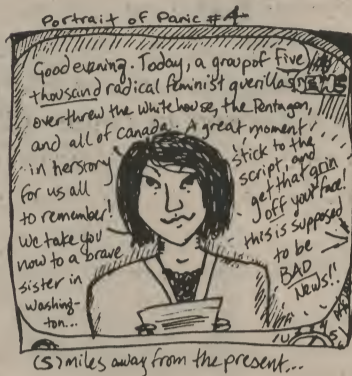 Portrait of Panic #4
Good evening. Today, a group of Five
thousand radical feminist guerillas
NEWS
overthrew the White house, the Pentagon,
and all of Canada. A great moment
in herstory
for us all
to remember!
We take you
now to a brave
sister in
Washing-
ton...
stick to the
script, and
get that grin
off your face!
this is supposed
to be
BAD
News!!
(5) miles away from the present...